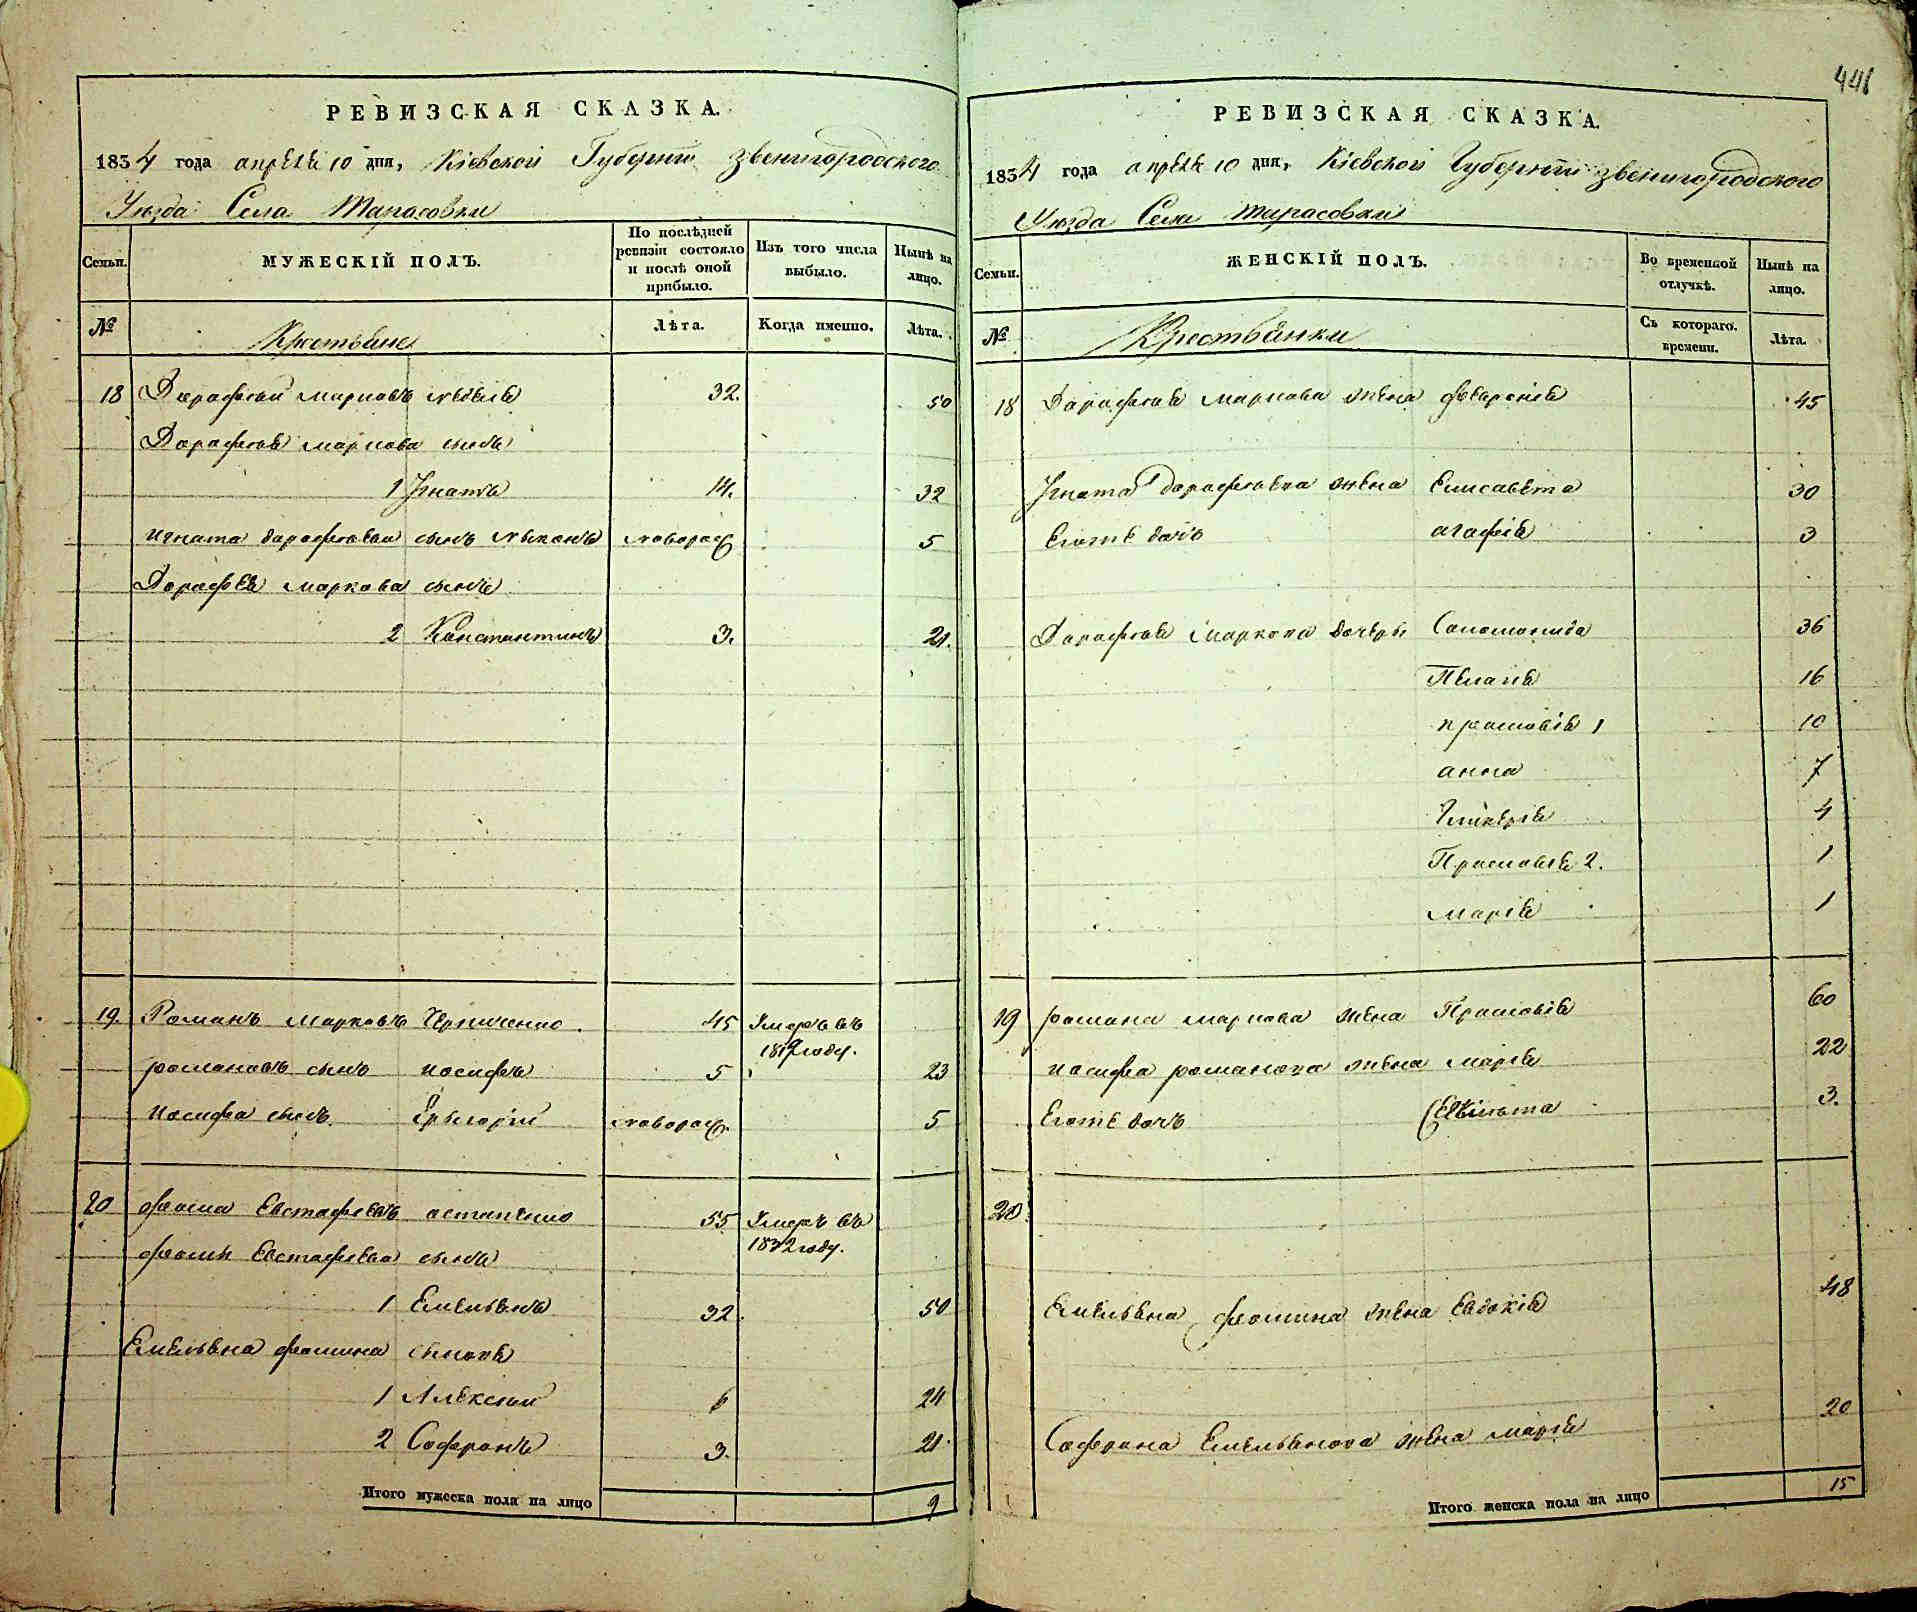 441
РЕВИЗСКАЯ СКАЗКА.
1834 года апреля 10 дня, Кіевской Губерніи Звенигородского
Уезда Села Тарасовки
Семьи.
МУЖЕСКІЙ ПОЛЪ.
По послѣдней ревизіи состояло и послѣ оной прибыло.
Изъ того числа выбыло.
Нынѣ на лицо.
№
Крестьяне
Лѣта.
Когда именно.
Лѣта.
18 Дорофей Марковъ 32. 50
Дорофея Маркова сынъ
1 Игнатъ 14. 32
Игната Дорофеева сынъ новорож 5
Дорофея Маркова сынъ
2 Константинъ 3. 21.
19. Романъ Марковъ 45 Умеръ въ
1819 году.
романовъ сынъ иосифъ 5 23
иосифа сынъ Григорій новорож. 5
20 Фома Евстафіевъ остапенко 55 Умеръ въ
1832 году.
Фомы Евстафіева сынъ
1 Емельянъ 32 50
Емельяна Фомина сыновя
1 Алексей 6 24
2 Соферонъ 3. 21.
Итого мужеска пола на лицо 9
РЕВИЗСКАЯ СКАЗКА.
1834 года апреля 10 дня, Кіевской Губерніи Звенигородского
Уезда Села Тарасовки
Семьи.
ЖЕНСКІЙ ПОЛЪ.
Во временной отлучкѣ.
Нынѣ на лицо.
№
Крестьянки
Съ котораго. времени.
Лѣта.
18 Дорофея Маркова жена Февронія 45
Игната Дорофеева жена Елисавета 30
Егоже дочь агафія 3
Дорофея Маркова дочери Соломонида 36
Пелагея 16
прасковія 1 10
анна 7
Гликерія 4
Прасковія 2. 1
марія 1
19 романа маркова жена Прасковія 60
иосифа романова жена марія 22
Егоже дочь 3.
20.
Емельяна Фомина жена Евдокія 48
Соферона Емельянова жена марія 20
Итого женска пола на лицо 15